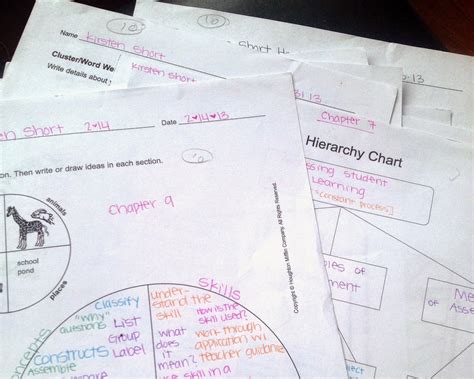 10
Name Kirsten Short
Cluster/Word We
Write details about
Kirsten Short
10
Short
:13
31:13
Chapter 7
Hierarchy Chart
ssing Student
Learning
constant process]
of
ment
Me
of Asse
sten Short
2♥14
Date 2♥14♥13
10
ion. Then write or draw ideas in each section.
Chapter 9
animals
school
pond
places
Copyright © Houghton Mifflin Company. All Rights Reserved.
concepts
Classify
"Why"
questions
List
Group
Label
Constructs
Skills
under-
stand the
skill
how is the
skill used?
what
does
it
mean?
work through
application w/
teacher guidance